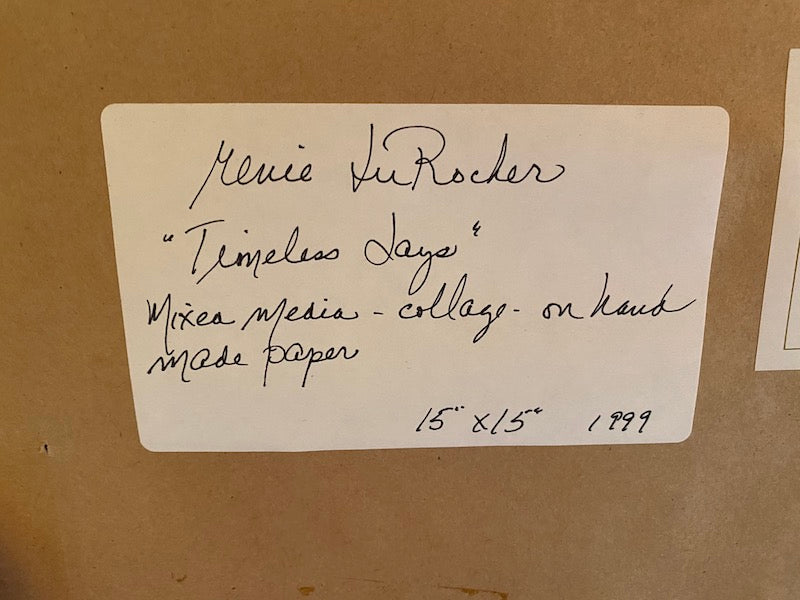 Renie DuRocher
"Timeless Days"
Mixed Media - collage - on hand
made paper
15" x 15" 1999